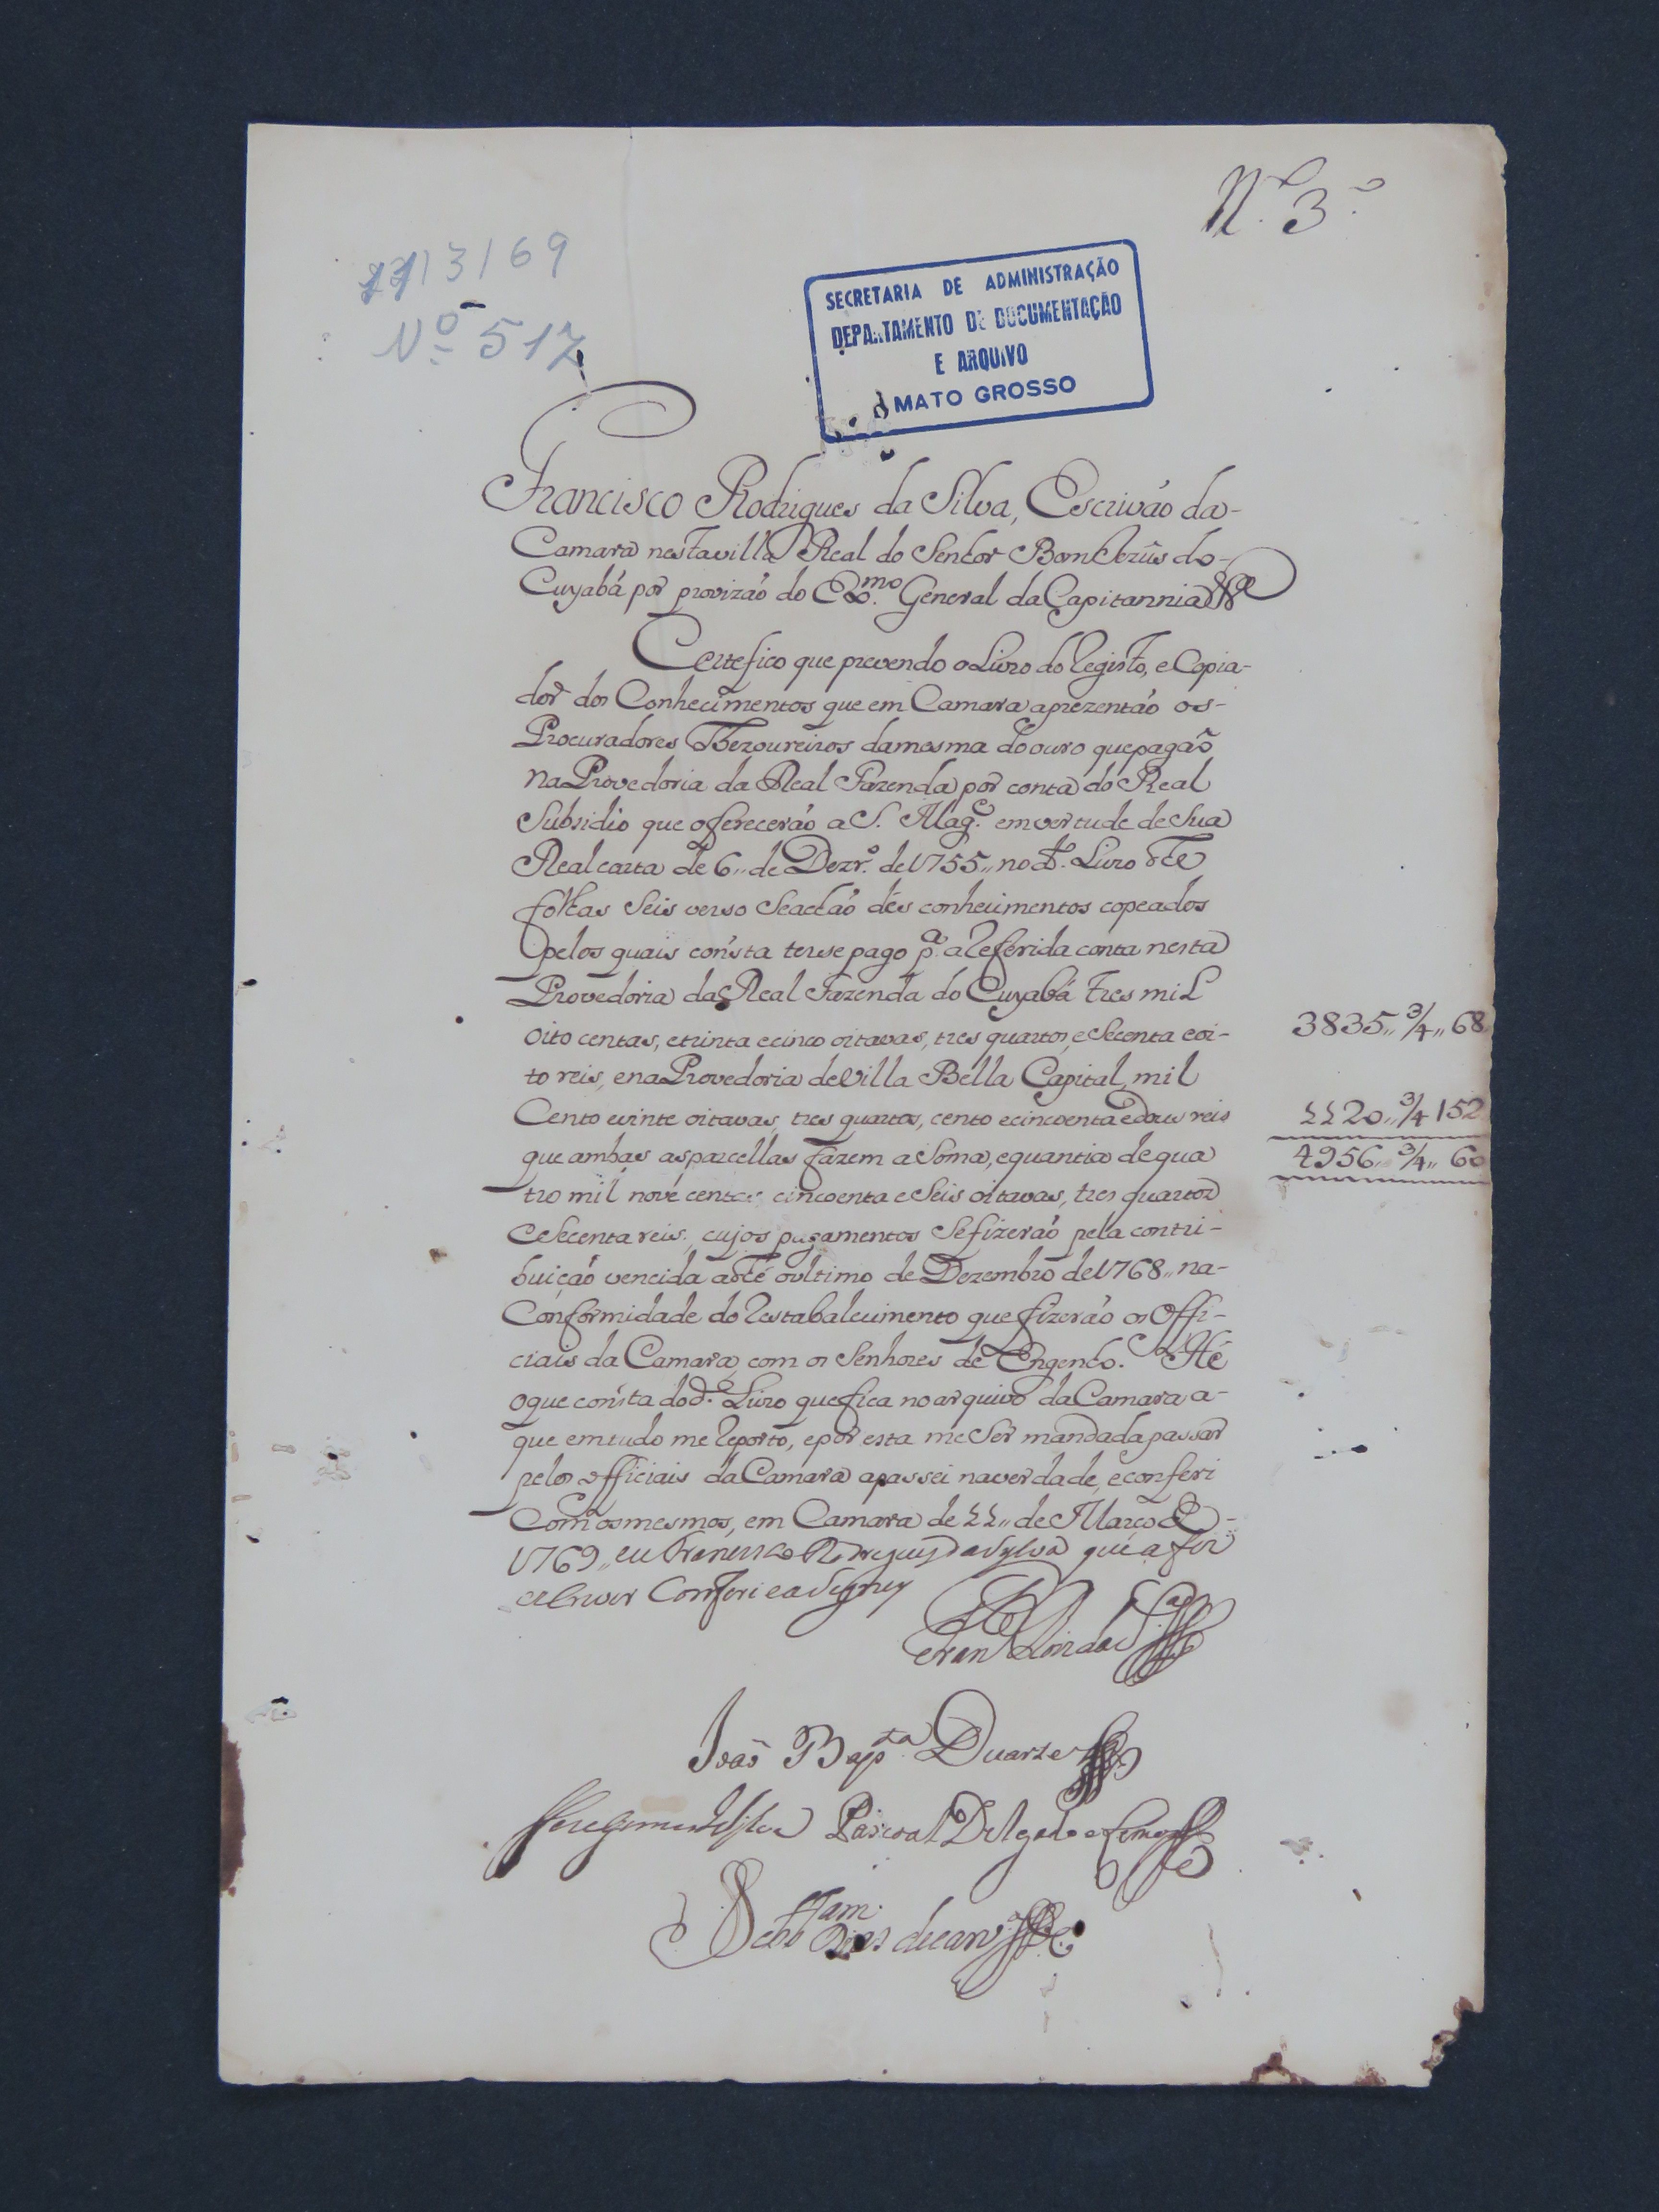 N.º 3.º
11/3/69
Nº 517
SECRETARIA DE ADMINISTRAÇÃO
DEPARTAMENTO DE DOCUMENTAÇÃO
E ARQUIVO
MATO GROSSO
Francisco Rodrigues da Silva, Escrivão da-
Camara nestavilla Real do Senhor Bom Jezûs do-
Cuyabá por provizão do Exmo. General da Capitannia &ª
Certefico que prevendo o Livro do Registo, e Copia-
dor dos Conhecimentos que em Camara aprezentão os-
Procuradores Thezoureiros damesma do ouro quepagão
na Provedoria da Real Fazenda por conta do Real
Subsidio que oferecerão a S. Mag.e emvertude de Sua
Real carta de 6,, de Dezr.º de 1755,, no d.º Livro athe
folhas Seis verso Seachão dés conhecimentos copeados
pelos quais consta terse pago p.ª a Referida conta nesta
Provedoria da Real Fazenda do Cuyabá tres mil
oito centas, etrinta ecinco oitavas, tres quartos, eSecenta eoi- 3835,, 3/4,, 68
to reis, ena Provedoria deVilla Bella Capital, mil
Cento evinte oitavas, tres quartos, cento ecincoenta edous reis 1120,, 3/4 152
que ambas asparcellas fazem a Soma, equantia de qua 4956,, 3/4,, 60
tro mil nove centas cincoenta e Seis oitavas, tres quartos
eSecenta reis, cujos pagamentos Sefizerão pela contri-
buição vencida athé oultimo de Dezembro de 1768,, na-
Conformidade do Restabalecimento que fizerão os Offi-
ciais da Camara, com os Senhores de Engenho. Hé
oque consta dod.º Livro quefica no arquivo da Camara a-
que emtudo me Reporto, epor esta me Ser mandada passar
pelos officiais da Camara apassei naverdade, econferi
Com osmesmos, em Camara de 11,, de Março de-
1769,, eu Francisco Rodrigues daSylva que a fiz
escrever Conferi e aSigney
Fran.co Roiz da S.ª
João Bap.ta Duarte
Pascoal Delgado e Lemos